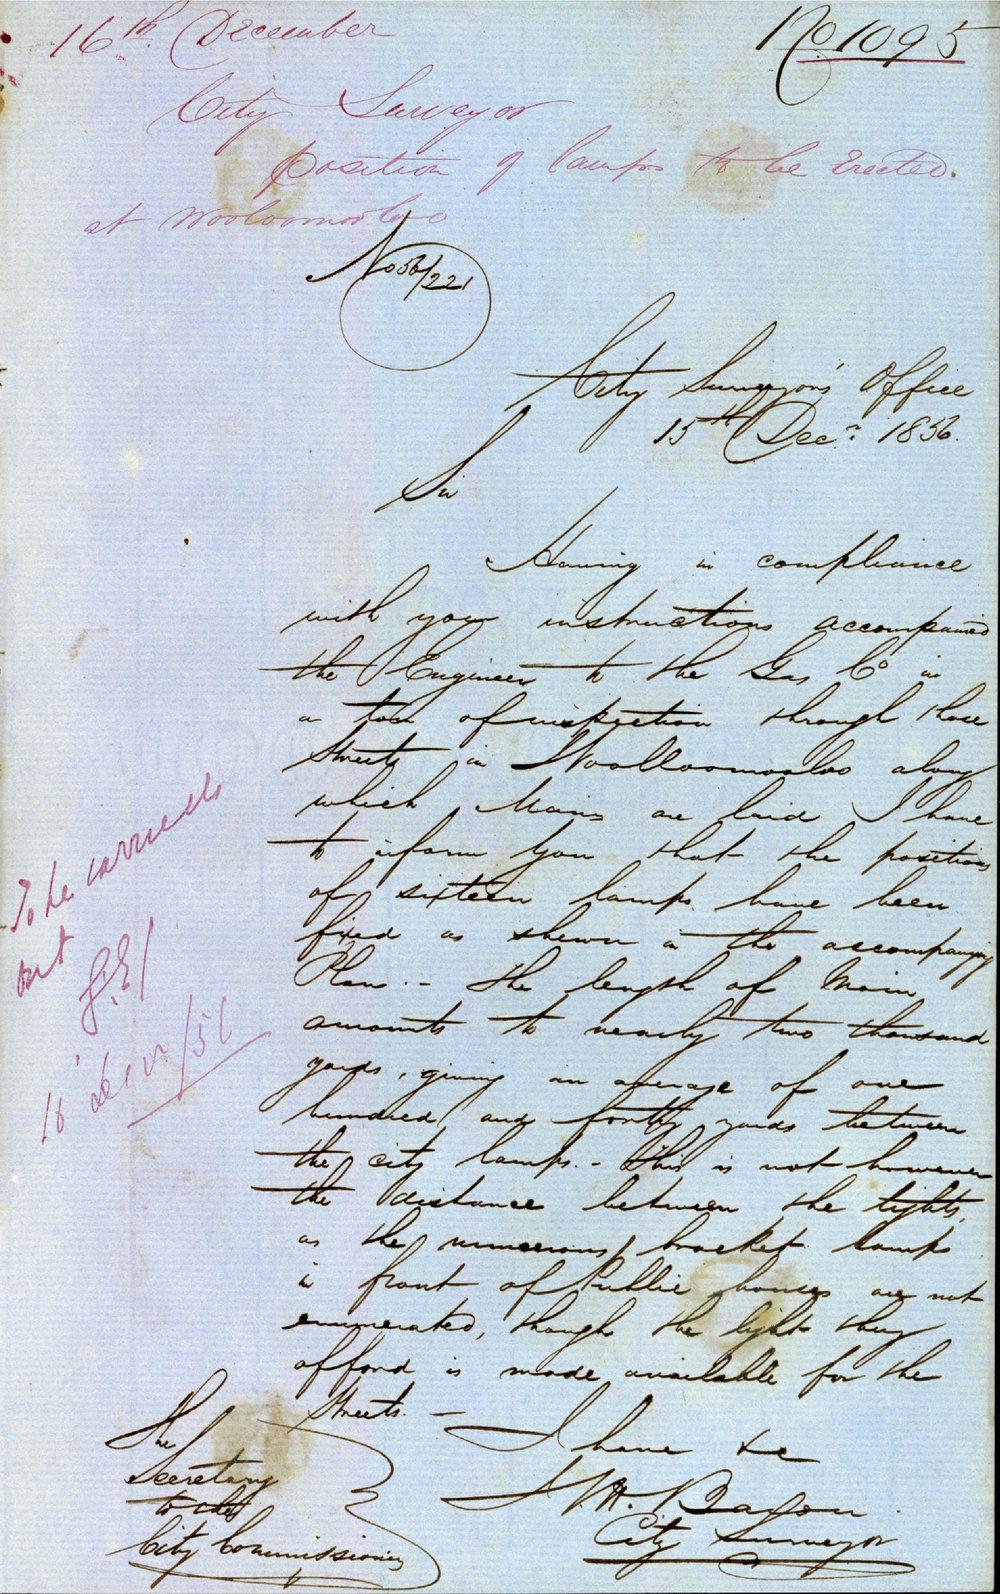 16th. December
No 1095
City Surveyor
position of lamps to be Erected.
at Wooloomooloo
No 56/221
City Surveyor's Office
15th Decr. 1856.
Sir
Having in compliance
with your instructions accompanied
the Engineer to the Gas Co in
a tour of inspection through those
Streets in Woolloomooloo along
which Mains are laid I have
to inform you that the positions
of sixteen lamps have been
fixed as shewn in the accompanying
Plan. - The length of Main
amounts to nearly two thousand
yards, giving an average of one
hundred and forty yards between
the city lamps. - This is not however
the distance between the lights,
as the numerous bracket lamps
in front of Public houses are not
enumerated, though the light they
afford is made available for the
Streets. -
I have &c
City Surveyor
The
Secretary
to the
City Commissioners
To be carried
out
16 Decr/56